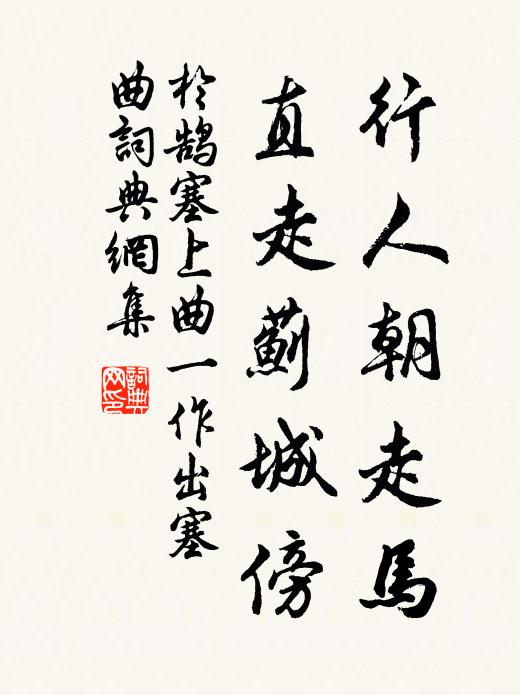 行人朝走馬
直走薊城傍
於鵠塞上曲一作出塞
曲詞典網集
詞典
网印